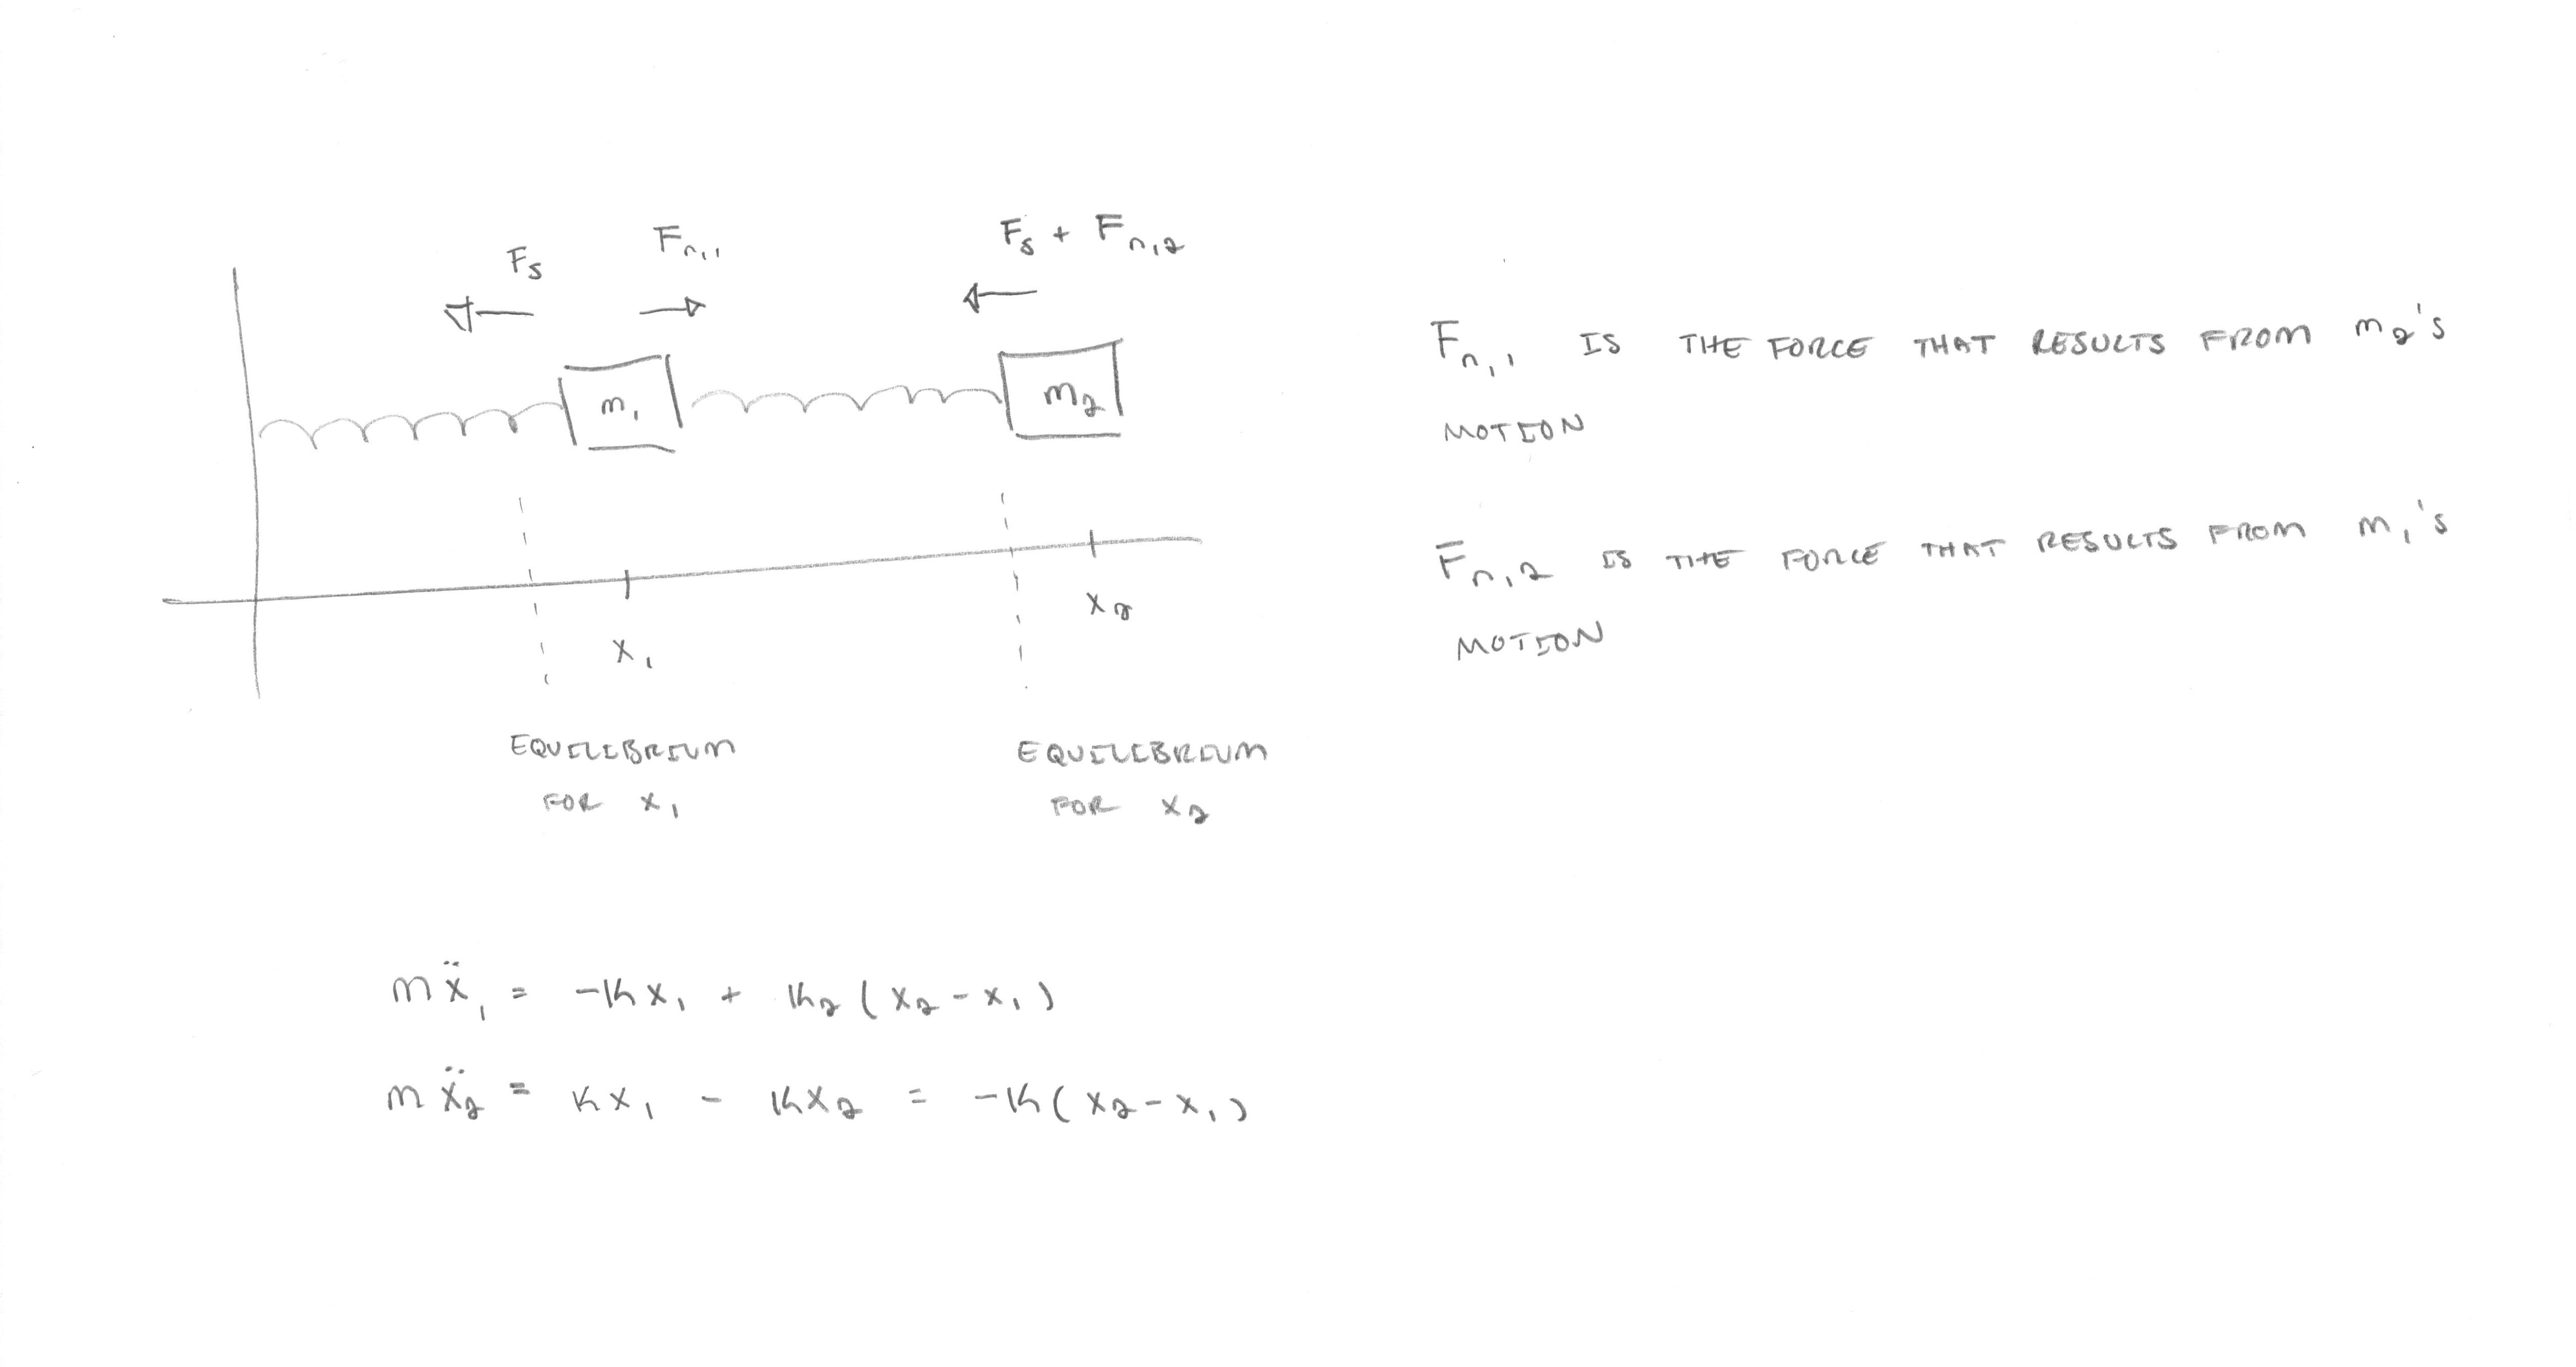 F_s
F_{n,1}
F_s + F_{n,2}
m_1
m_2
x_1
x_2
EQUILIBRIUM
FOR x_1
EQUILIBRIUM
FOR x_2
F_{n,1} IS THE FORCE THAT RESULTS FROM m_2's
MOTION
F_{n,2} IS THE FORCE THAT RESULTS FROM m_1's
MOTION
mẍ_1 = -kx_1 + k_2(x_2 - x_1)
mẍ_2 = kx_1 - kx_2 = -k(x_2 - x_1)